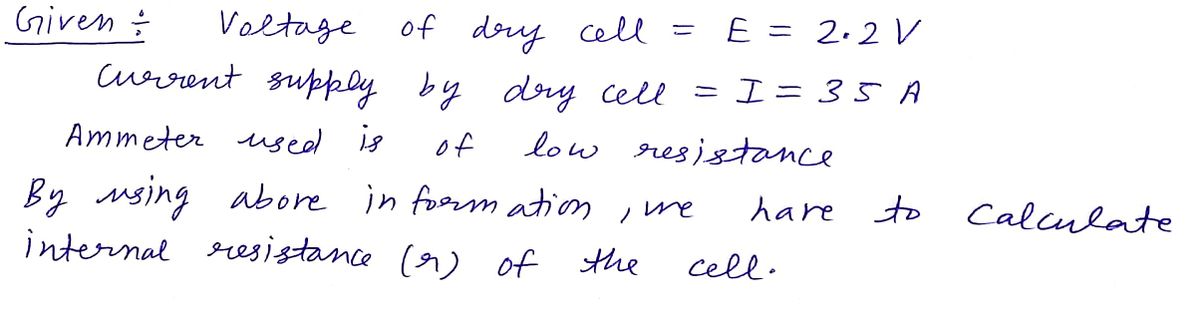 Given ÷ Voltage of dry cell = E = 2.2 V
Current supply by dry cell = I = 35 A
Ammeter used is of low resistance
By using above information, we have to calculate
internal resistance (r) of the cell.